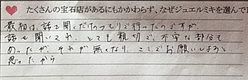 たくさんの宝石店があるにもかかわらず、なぜジュエルミキを選んで
最初は、話を聞くだけのつもりで行ったのですが
話を聞いてくれ、とても親切で、不安な部分も
あったが、それが無くなり、ここでお願いしようと
思ったから